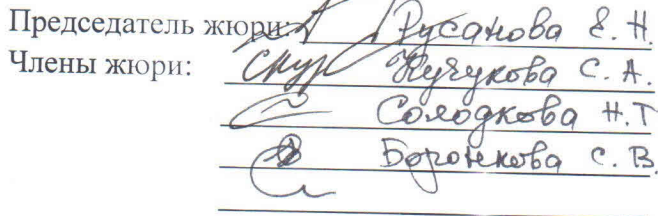 Председатель жюри: Русанова Е. Н.
Члены жюри: Кучукова С. А.
Солодкова Н. Т
Боронкова С. В.